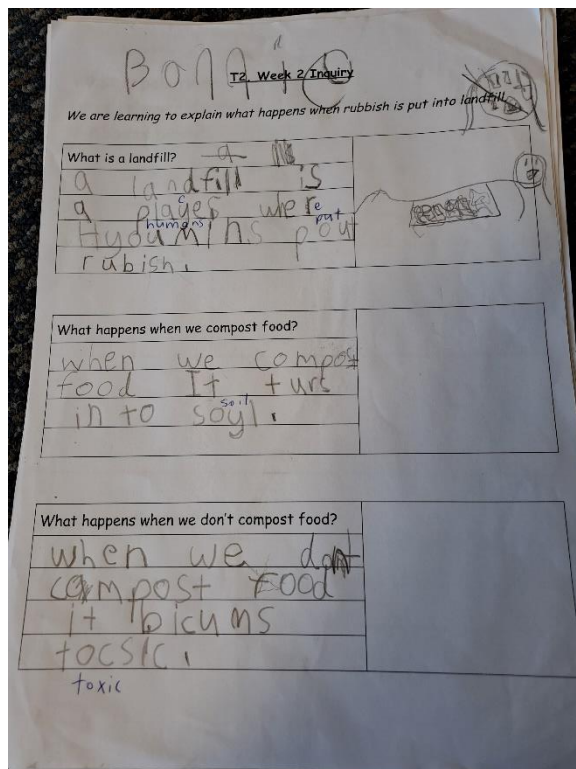 T2 Week 2 Inquiry
We are learning to explain what happens when rubbish is put into landfill.
What is a landfill? a
a landfill is
a plages were
humans put
Hyoumins pout
rubish.
What happens when we compost food?
when we compost
food It turs
soil
in to soyl.
What happens when we don't compost food?
when we dont
compost Food
it bicums
tocsic.
toxic